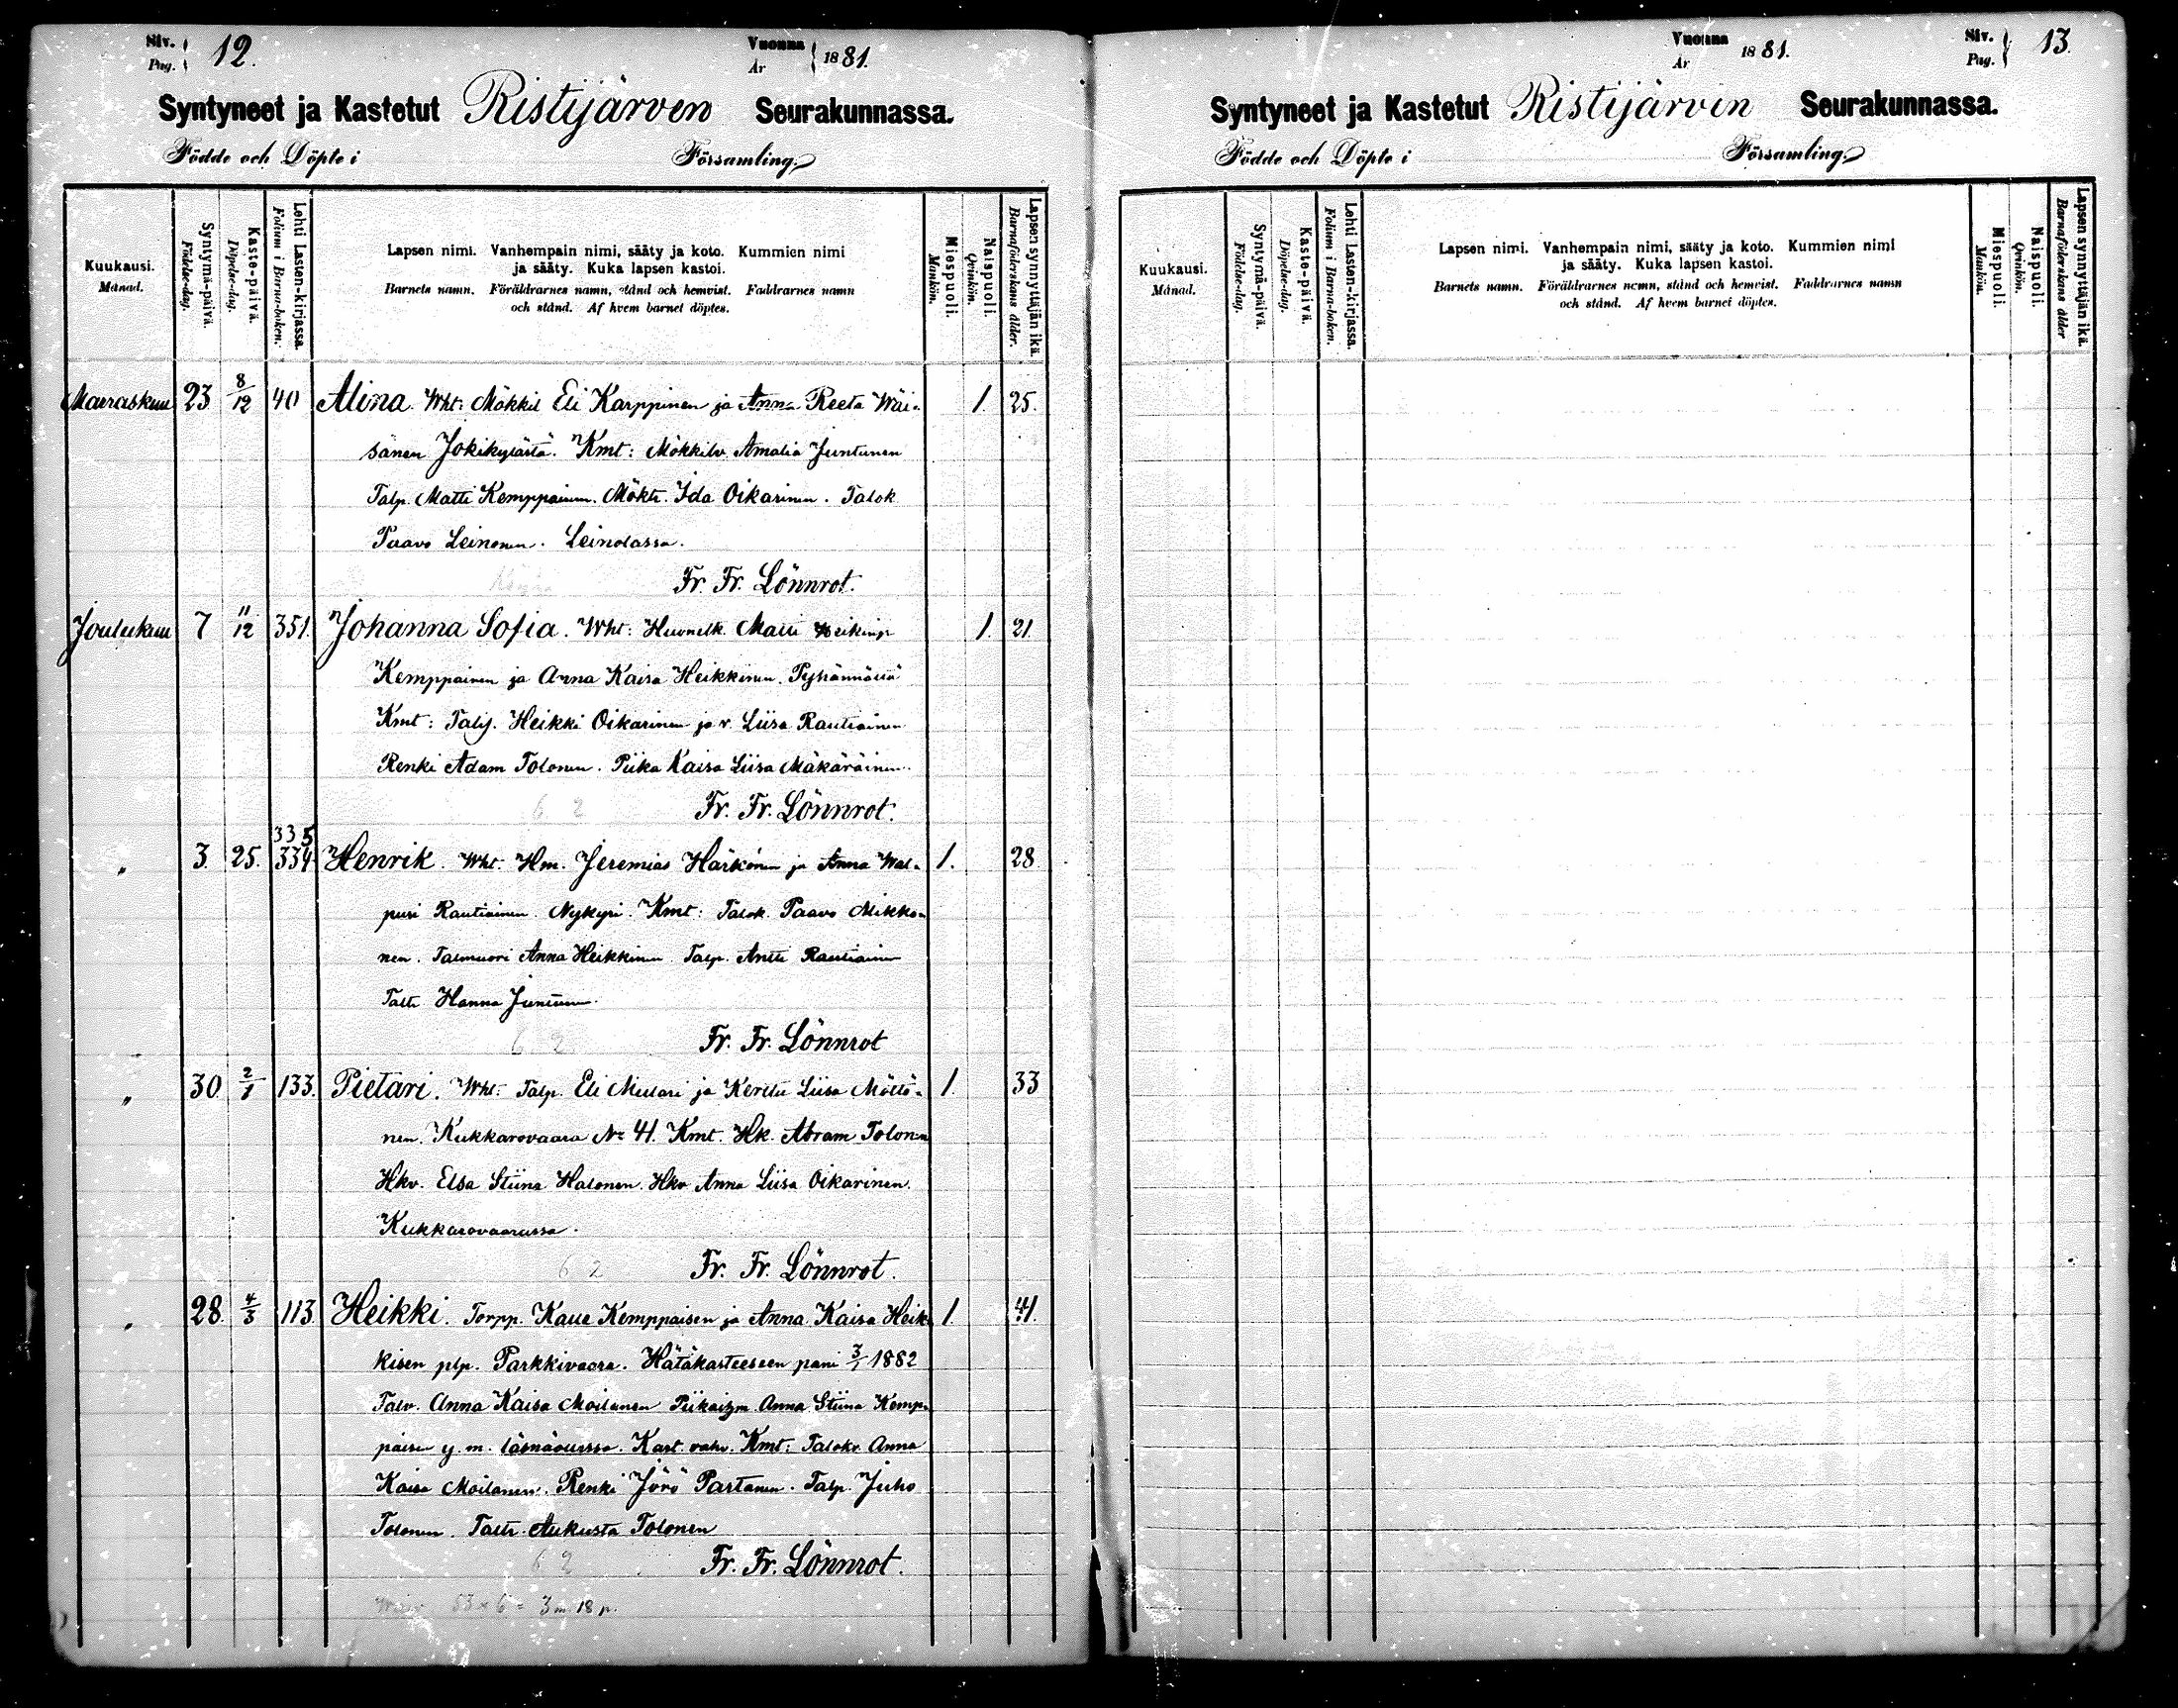 Siv. Pag. 12.
Vuonna År 1881.
Syntyneet ja Kastetut Ristijärven Seurakunnassa.
Födde och Döpte i Församling.
Kuukausi. Månad.
Syntymä-päivä. Födelse-dag.
Kaste-päivä. Döpelse-dag.
Lehti Lasten-kirjassa. Folium i Barna-boken.
Lapsen nimi. Vanhempain nimi, sääty ja koto. Kummien nimi
ja sääty. Kuka lapsen kastoi.
Barnets namn. Föräldrarnes namn, stånd och hemvist. Faddrarnes namn
och stånd. Af hvem barnet döptes.
Miespuoli. Mankön.
Naispuoli. Qvinkön.
Lapsen synnyttäjän ikä. Barnaföderskans ålder.
Marraskuu 23 8/12 40 Alina. Wht: Mökkil Eli Karppinen ja Anna Reeta Wäi- 1. 25.
sänen Jokikylästä. Kmt: Mökkilv. Amalia Juntunen
Talp. Matti Kemppainen. Mökt. Ida Oikarinen. Talok
Paavo Leinonen. Leinolassa.
Fr. Fr. Lönnrot.
Joulukuu 7 11/12 351. Johanna Sofia. Wht: Huonelk. Matti Heikinp 1. 21.
Kemppainen ja Anna Kaisa Heikkinen. Pyhännältä
Kmt: Talij. Heikki Oikarinen ja v. Liisa Rautiainen
Renki Adam Tolonen. Piika Kaisa Liisa Mäkäräinen.
6 2 Fr. Fr. Lönnrot.
335
" 3. 25. 334. Henrik. Wht. Hm. Jeremias Härkönen ja Anna Wal- 1. 28
puri Rautiainen. Nykyri. Kmt: Talok. Paavo Mikko-
nen. Talmuori Anna Heikkinen Talp. Antti Rautiainen
Taltr Hanna Juntunen.
6 2 Fr. Fr. Lönnrot
" 30. 2/1 133. Pietari. Wht: Talp. Eli Mullari ja Kerttu Liisa Möttö- 1. 33
nen. Kukkarovaara No 41. Kmt. Hk. Abram Tolonen
Hkv. Elsa Stiina Halonen. Hkv Anna Liisa Oikarinen.
Kukkarovaarassa.
6 2 Fr. Fr. Lönnrot.
" 28. 4/3 113. Heikki. Torpp. Kalle Kemppaisen ja Anna Kaisa Heik- 1. 41.
kisen plp. Parkkivaara. Hätäkasteeseen pani 3/1 1882
Talv. Anna Kaisa Moilanen Piikaizm Anna Stiina Kemp-
paisen y. m. läsnäollessa. Kast. vahv. Kmt: Talokv. Anna
Kaisa Moilanen. Renki Jörö Partanen. Talp. Juho
Tolonen. Taltr. Aukusta Tolonen
6 2 Fr. Fr. Lönnrot.
53 × 6 = 3 m 18 p.
Vuonna År 1881.
Siv. Pag. 13.
Syntyneet ja Kastetut Ristijärven Seurakunnassa.
Födde och Döpte i Församling.
Kuukausi. Månad.
Syntymä-päivä. Födelse-dag.
Kaste-päivä. Döpelse-dag.
Lehti Lasten-kirjassa. Folium i Barna-boken.
Lapsen nimi. Vanhempain nimi, sääty ja koto. Kummien nimi
ja sääty. Kuka lapsen kastoi.
Barnets namn. Föräldrarnes namn, stånd och hemvist. Faddrarnes namn
och stånd. Af hvem barnet döptes.
Miespuoli. Mankön.
Naispuoli. Qvinkön.
Lapsen synnyttäjän ikä. Barnaföderskans ålder